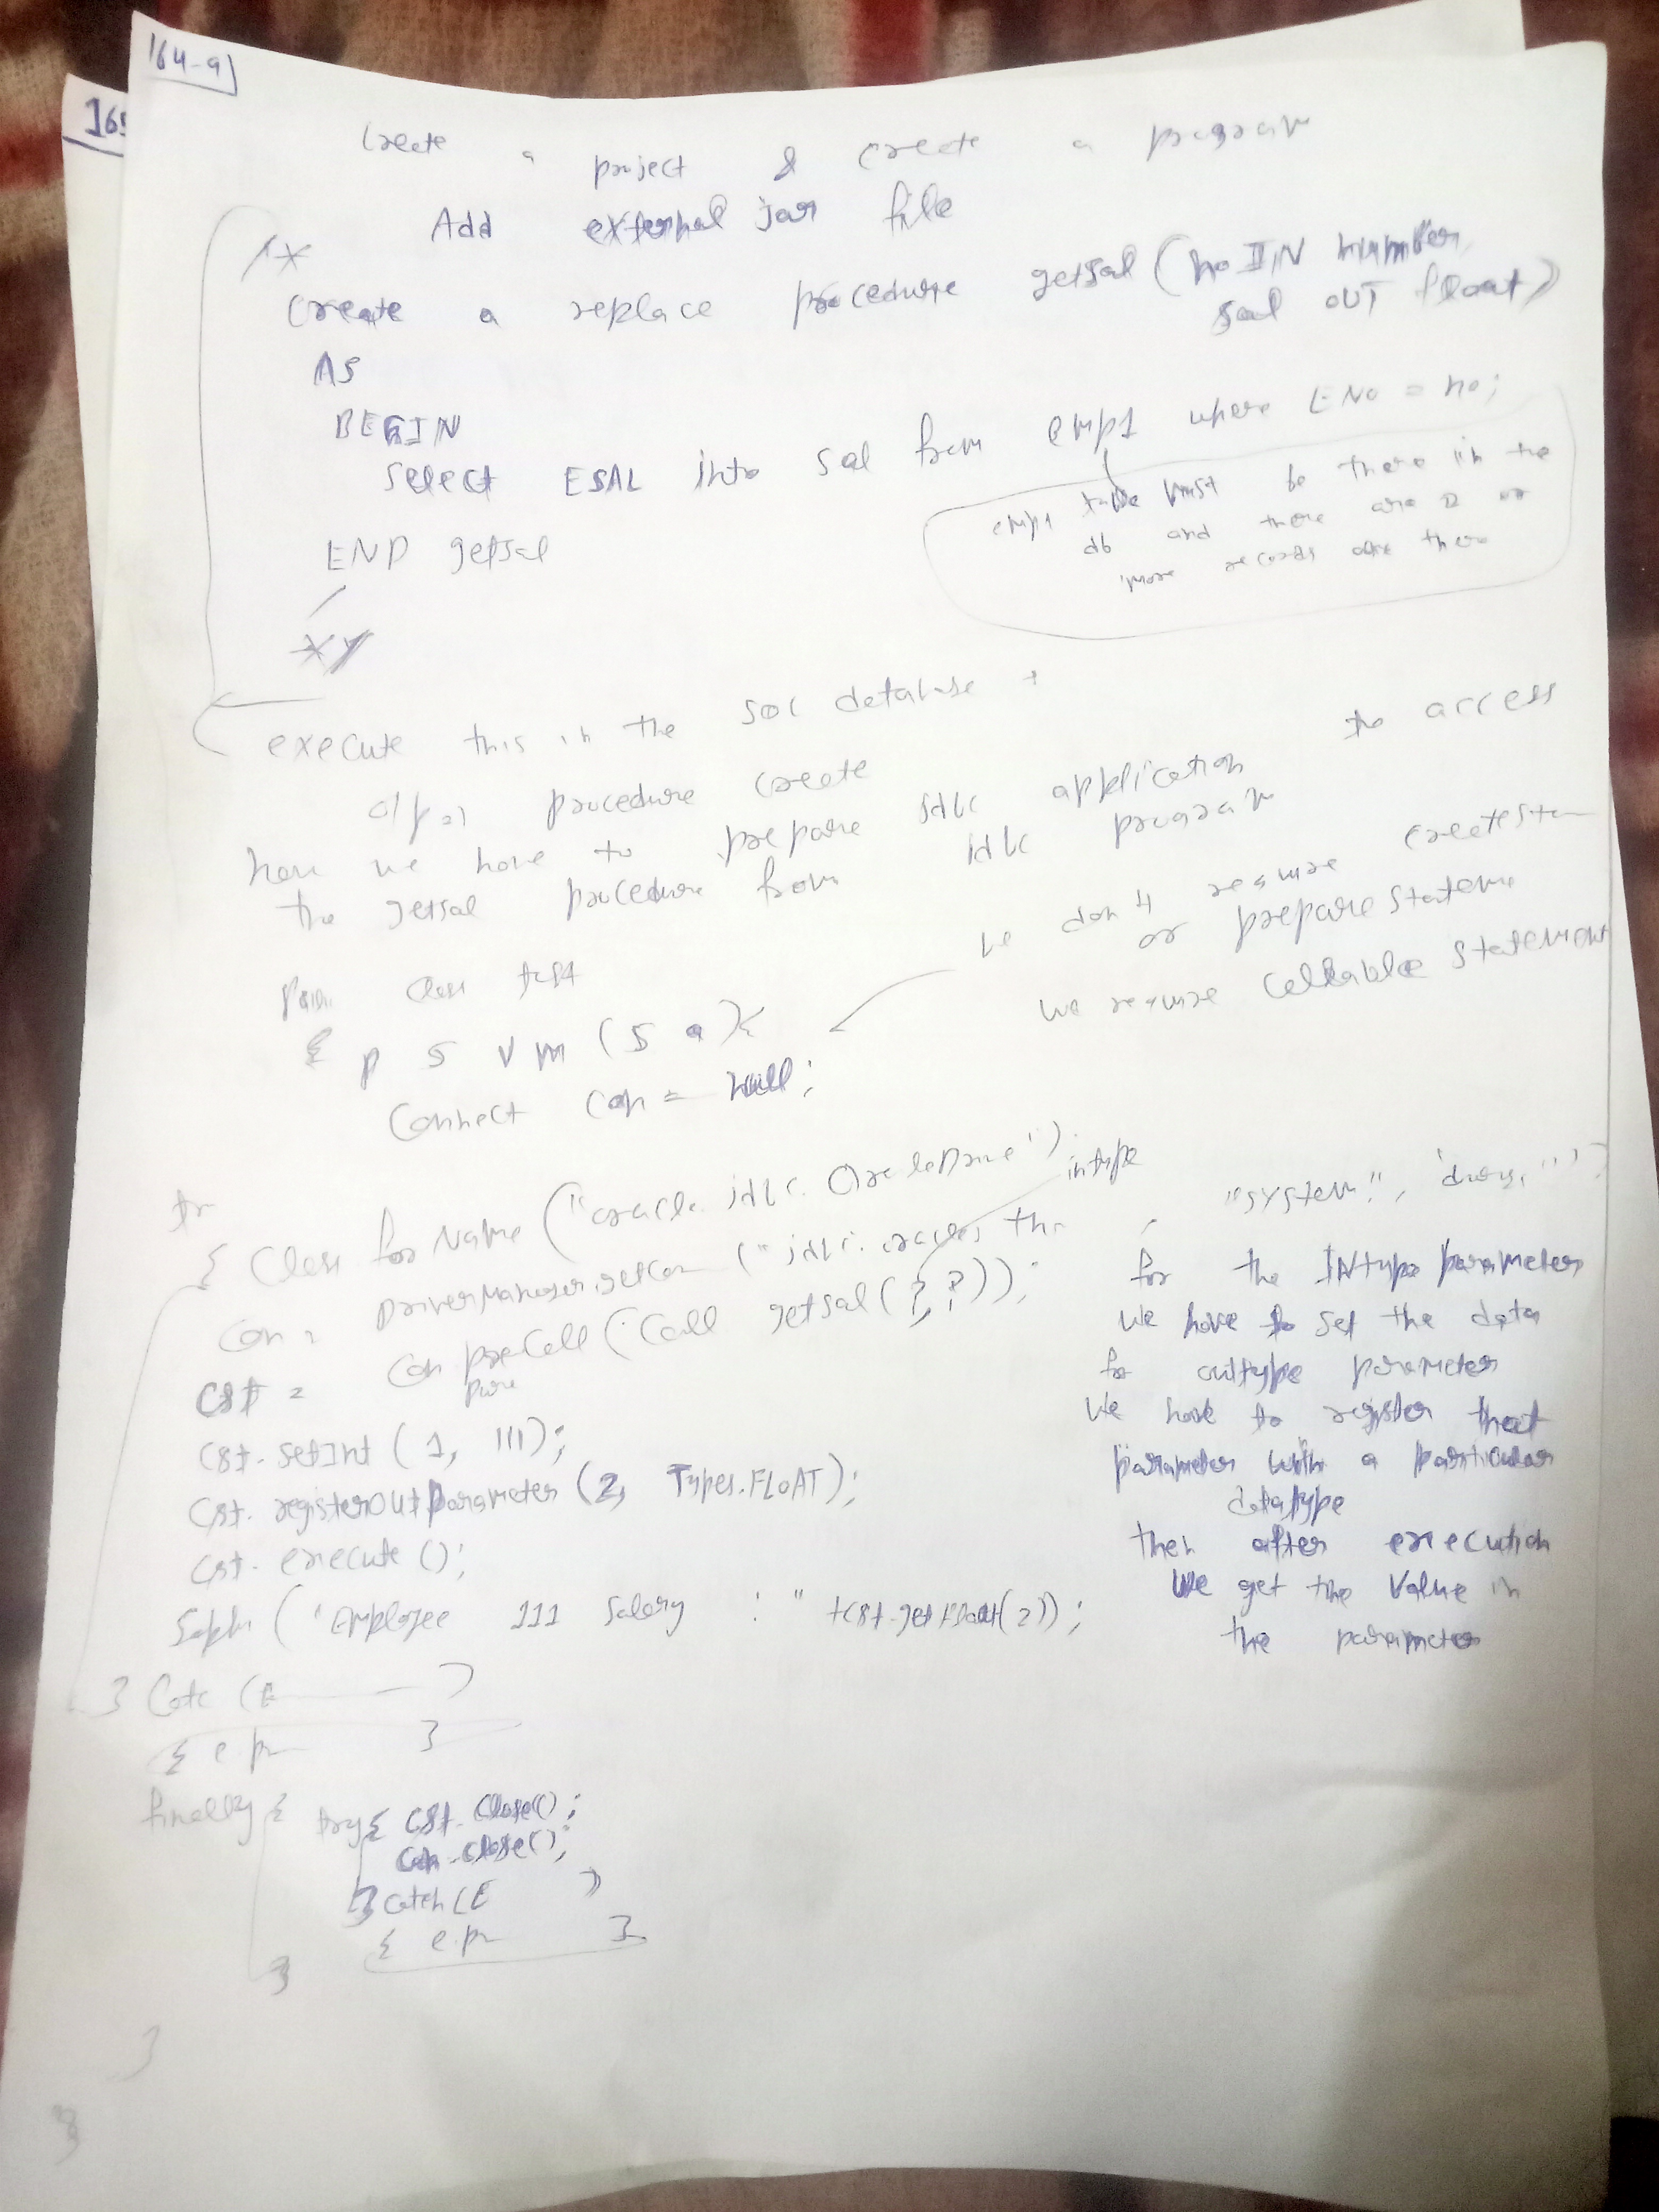 164-9
165
Create a project & create a program
Add external jar file
/*
Create a replace procedure getsal (no IN number,
sal OUT float)
AS
BEGIN
select ESAL into sal from emp1 where ENo = no;
emp1 table must be there in the
db and there are 2 or
more records are there
END getsal
/
*/
execute this in the SQL database
o/p => procedure create
here we have to prepare jdbc application the access
the getsal procedure from jdbc program
we don't require createstm
or prepare stateme
we require callable statement
class test
{ p s v m (s a){
Connect con = null;
tr
{ Class forName ("oracle.jdbc.OracleDrive")
intype
con = DriverManager.getcon ("jdbc.oracles thn , "system",
cst = con preCall ("Call getsal (?,?));
pare
cst. setInt (1, 111);
cst. registerOutParameter (2, Types.FLOAT);
cst. execute ();
Sopln ("Employee 111 Salary : " +cst.getFloat(2));
for the INtype parameter
we have to set the data
for outtype parameter
we have to register that
parameter with a particular
datatype
then after execution
we get the value in
the parameter
} Catc (E )
{ e.p }
finally {
try{ cst. close();
con.close();
} catch (E )
{ e.p }
}
}
}